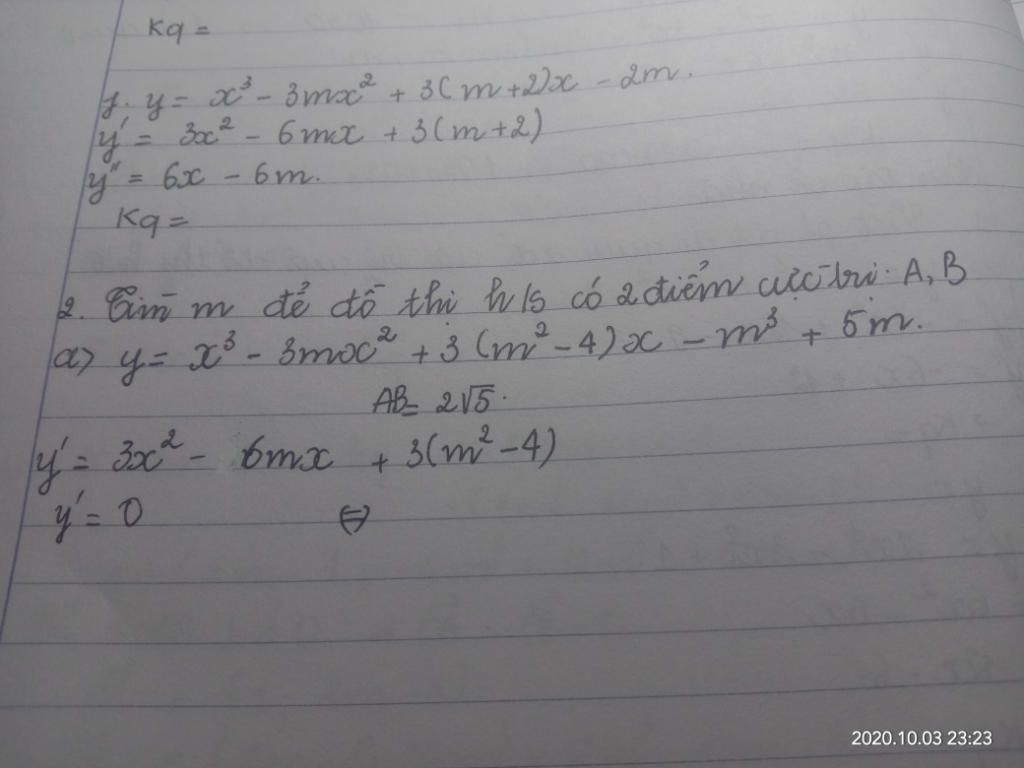 Kq =
f. y = x³ - 3mx² + 3(m+2)x - 2m.
y' = 3x² - 6mx + 3(m+2)
y'' = 6x - 6m.
Kq =
2. Tìm m để đồ thị h/s có 2 điểm cực trị A, B
a) y = x³ - 3mx² + 3(m² - 4)x - m³ + 5m.
AB = 2√5.
y' = 3x² - 6mx + 3(m² - 4)
y' = 0 ⇔
2020.10.03 23:23